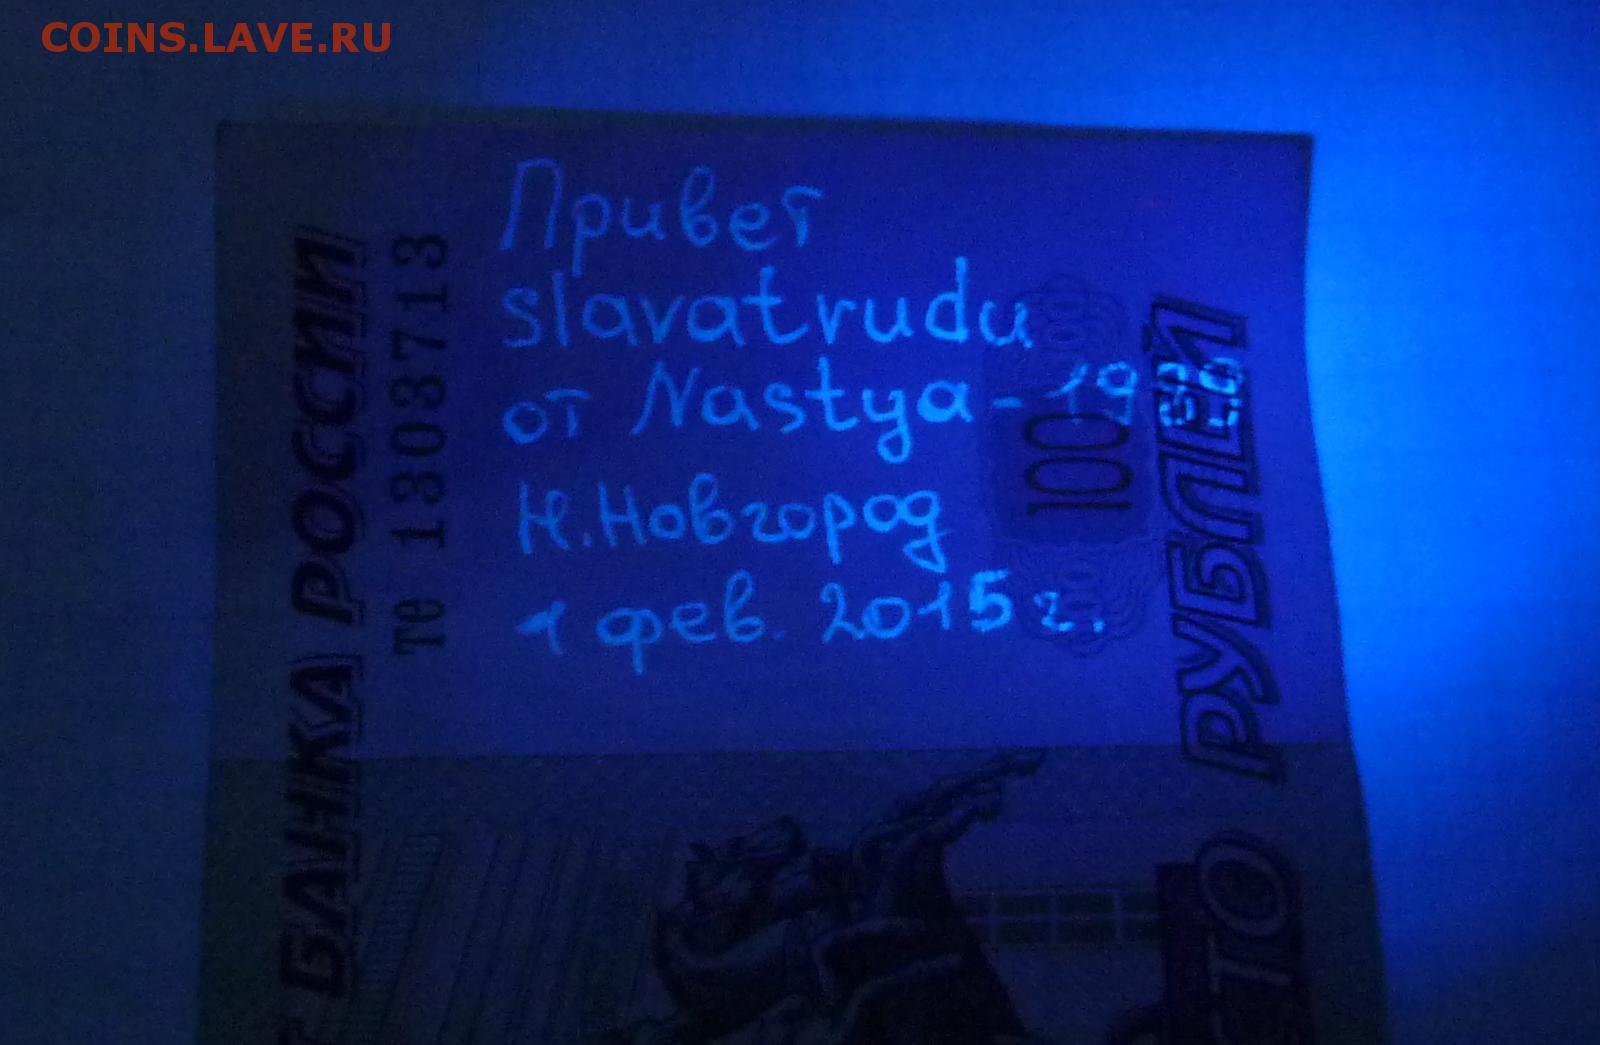 COINS.LAVE.RU
Привет
slavatrudu
от Nastya-1980
Н.Новгород
1 фев. 2015 г.
те 1303713
БАНКА РОССИИ
100
СТО РУБЛЕЙ